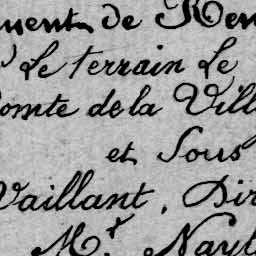 de
Le terrain Le
Comte de la Vill
et Sous
Vaillant, Dir
Mr. Nayl